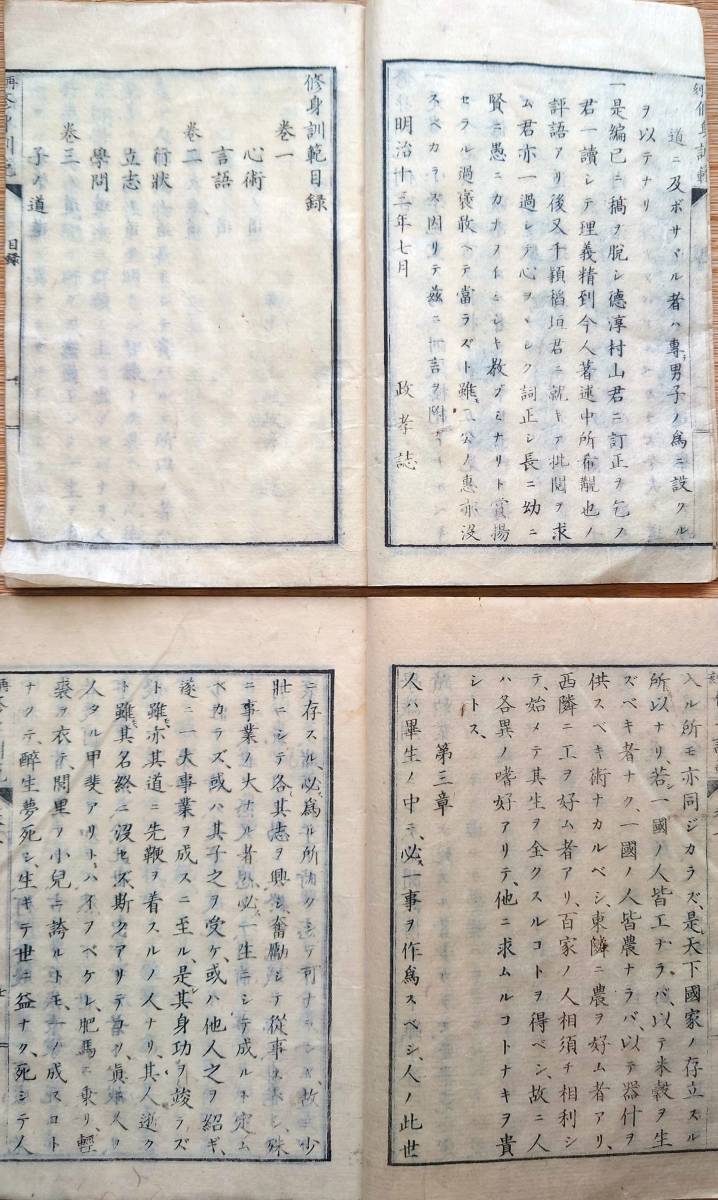 道ニ及ボサヾル者ハ專男子ノ爲ニ設クル
ヲ以テナリ
一是編已ニ稿ヲ脱シ德淳村山君ニ訂正ヲ乞フ
君一讀シテ理義精到今人著述中所希覯也ノ
評語アリ後又千穎稻垣君ニ就キテ批閲ヲ求
ム君亦一過シテ心ヲ
詞正シ長ニ幼ニ
賢ニ愚ニカナ
教ブミナリト賞揚
セラル過褒敢ヘテ當ラズト雖二公ノ惠亦沒
スベカラズ因リテ茲ニ
言ヲ附
明治十三年七月
政孝誌
修身訓範目録
卷一
心術
言語
卷二
行狀
立志
學問
卷三
子ノ道
目録
入ル所モ亦同ジカラズ、是天下國家ノ存立スル
所以ナリ、若一國ノ人皆工ナラバ、以テ米穀ヲ生
ズベキ者ナク、一國ノ人皆農ナラバ、以テ器什ヲ
供スベキ術ナカルベシ、東隣ニ農ヲ好ム者アリ、
西隣ニ工ヲ好ム者アリ、百家ノ人相須チ相利シ
テ、始メテ其生ヲ全クスルコトヲ得ベシ、故ニ人
ハ各異ノ嗜好アリテ、他ニ求ムルコトナキヲ貴
シトス、
第三章
人ハ畢生ノ中ニ、必一事ヲ作爲スベシ、人ノ此世
ニ存スル、必爲ル所ナク
テ可ナランヤ、故ニ少
壯ニシテ各其志ヲ興シ、奮勵シテ從事
ベシ、殊
ニ事業ノ大ナル者ハ、必一生ニシテ成ルト定ム
ベカラズ、或ハ其子之ヲ受ケ、或ハ他人之ヲ紹ギ、
遂ニ一大事業ヲ成スニ至ル、是其身功ヲ竣ラズ
ト雖、亦其道ニ先鞭ヲ着スルノ人ナリ、其人逝ク
ト雖、其名終ニ沒セズ、斯クアリテ
眞
人タル甲斐アリト、ハイフベケレ、肥馬ニ乗リ、輕
裘ヲ衣テ、閭里ノ小兒ニ誇ルトモ、一ノ成スコト
ナクテ、醉生夢死シ、生キテ世ニ益ナク、死シテ人